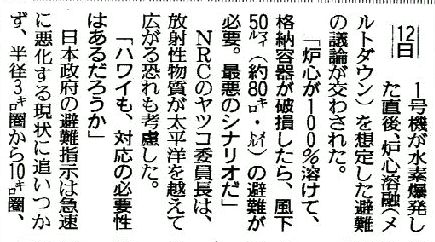 12日
1号機が水素爆発し
た直後、炉心溶融(メ
ルトダウン)を想定した避難
の議論が交わされた。
「炉心が100%溶けて、
格納容器が破損したら、風下
50マイル(約80キロ・メートル)の避難が
必要。最悪のシナリオだ」
NRCのヤツコ委員長は、
放射性物質が太平洋を越えて
広がる恐れも考慮した。
「ハワイも、対応の必要性
はあるだろうか」
日本政府の避難指示は急速
に悪化する現状に追いつか
ず、半径3キロ圏から10キロ圏、